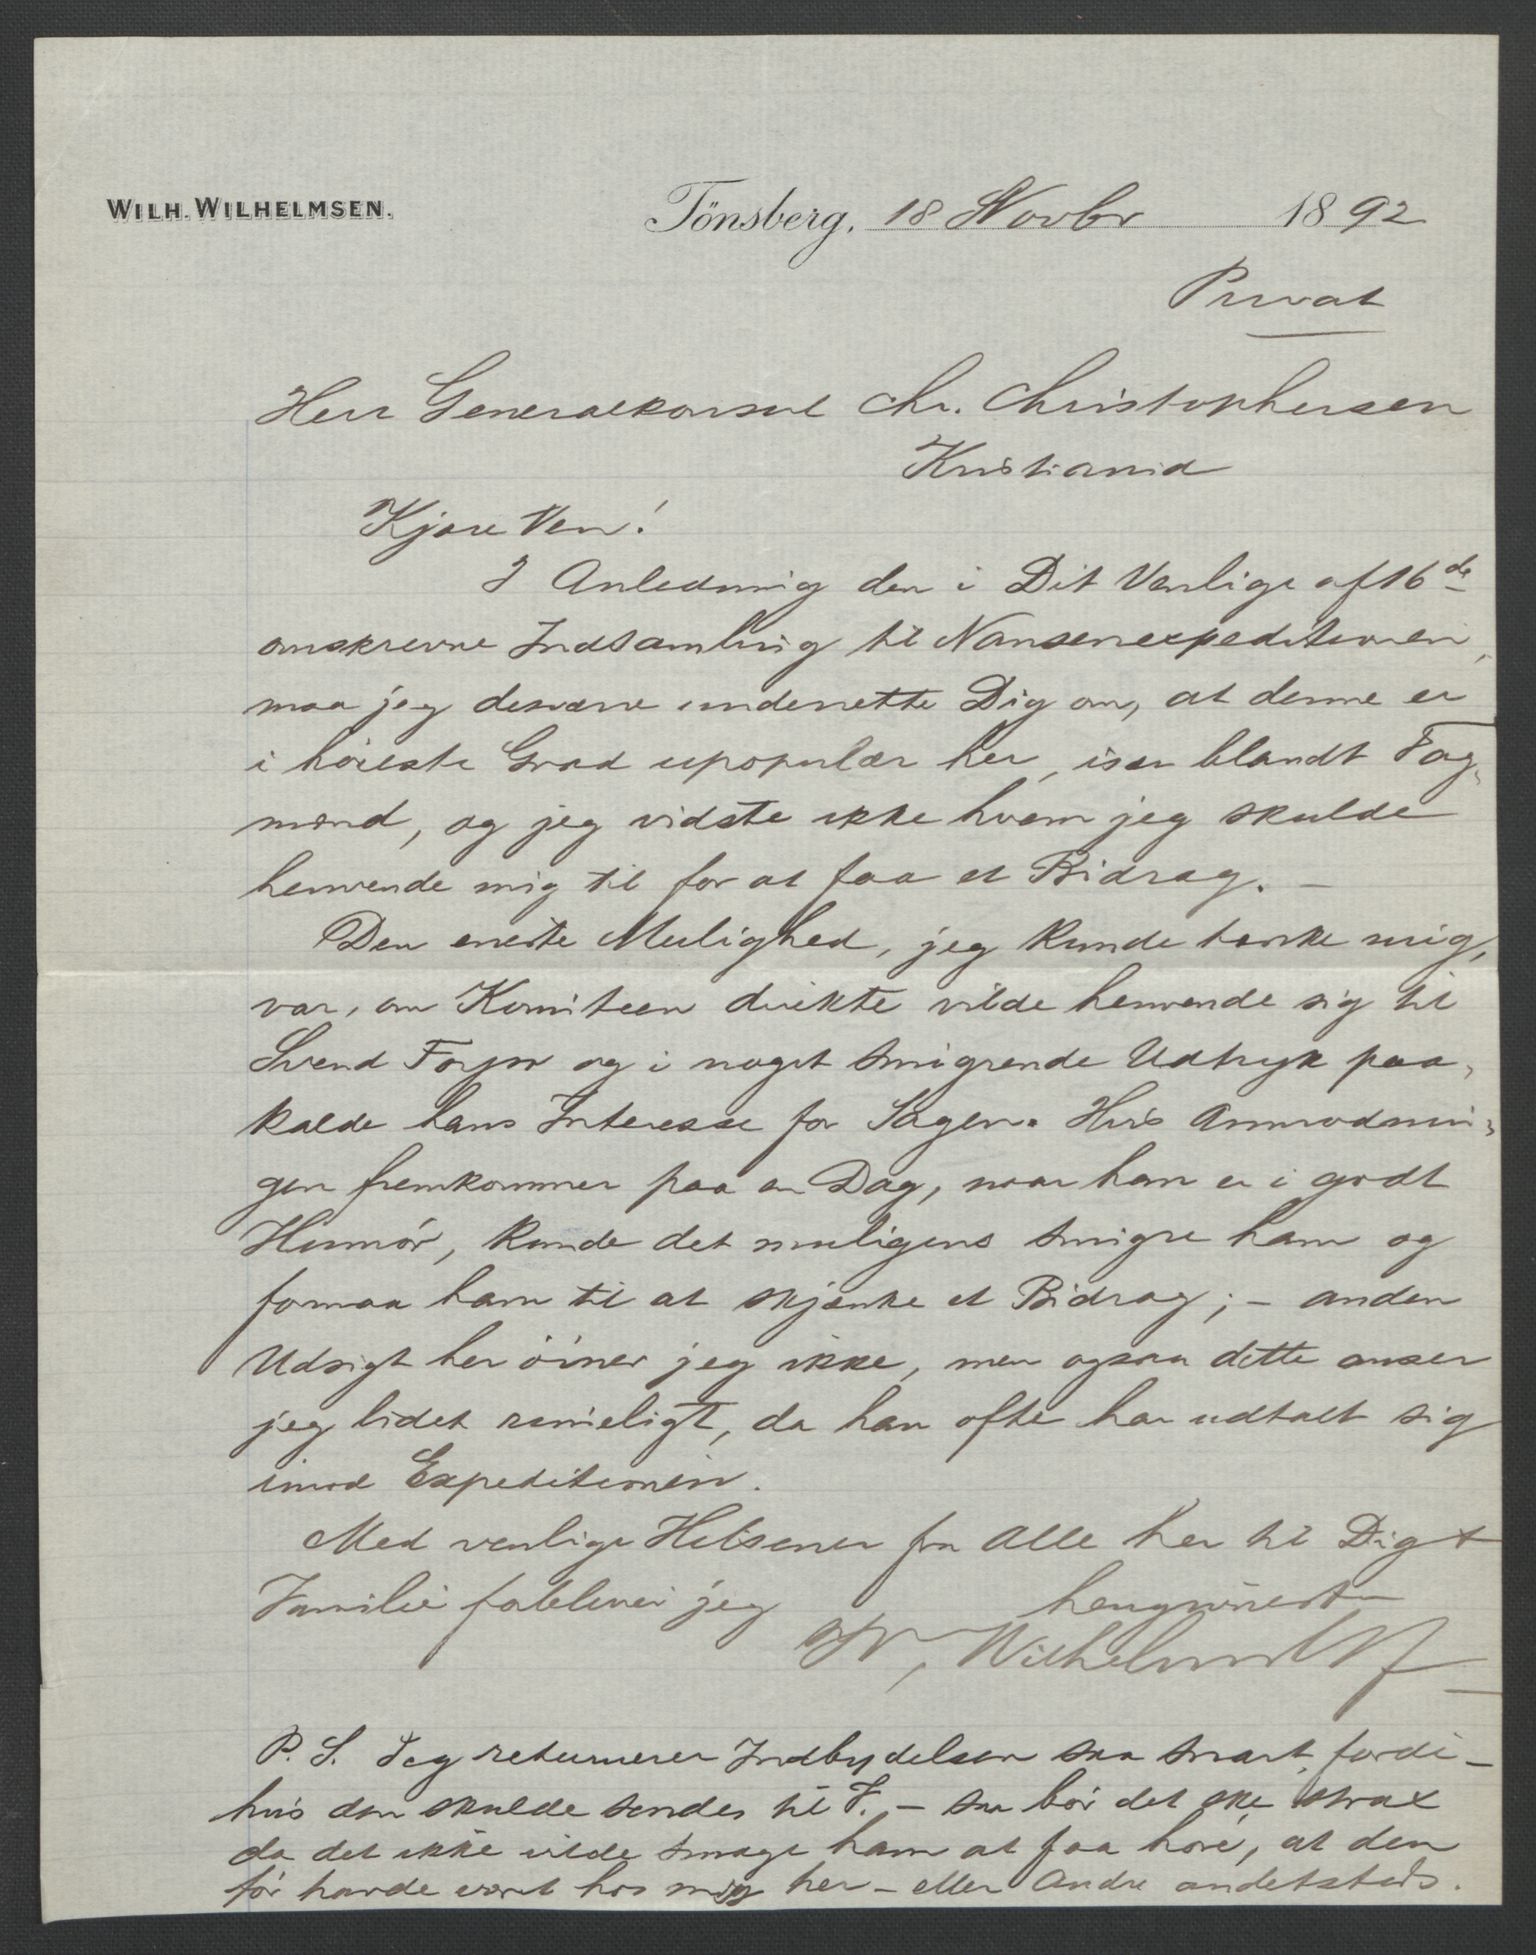 WILH. WILHELMSEN.
Tönsberg, 18 Novbr 1892
Privat
Herr Generalkonsul Chr. Christophersen
Kristiania
Kjære Ven!
I Anledning den i Dit Venlige af 16de
omskrevne Indsamling til Nansenexpeditionen,
maa jeg desværre underrette Dig om, at denne er
i høieste Grad upopulær her, især blandt Fag-
mænd, og jeg vidste ikke hvem jeg skulde
henvende mig til for at faa et Bidrag. –
Den eneste Mulighed, jeg kunde tænke mig,
var, om Komiteen direkte vilde henvende sig til
Svend Foyn og i noget smigrende Udtryk paa-
kalde hans Interesse for Sagen. Hvis Anmodnin-
gen fremkommer paa en Dag, naar han er i godt
Humör, kunde det muligens smigre ham og
formaa ham til at skjænke et Bidrag; – anden
Udsigt her öiner jeg ikke, men ogsaa dette anser
jeg lidet rimeligt, da han ofte har udtalt sig
imod Expeditionen.
Med venlige Hilsener fra Alle her til Dig +
Familie forbliver jeg hengivnest
W. Wilhelmsen
P. S. Jeg returnerer Indbydelsen saa snart, fordi –
hvis den skulde sendes til F. – saa bör det ske strax
da det ikke vilde smage ham at faa höre, at den
för havde været hos mig her – eller Andre andetsteds.